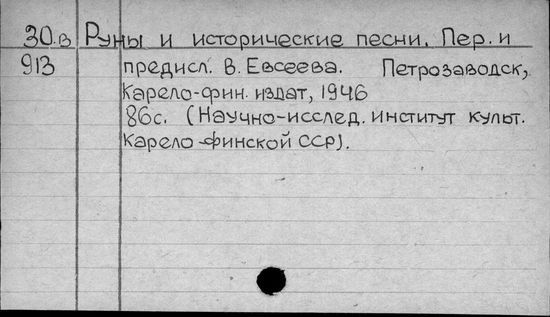 30.в Руны и исторические песни. Пер. и
913 предисл. В. Евсеева. Петрозаводск,
Карело-фин. издат, 1946
86с. (Научно-исслед. институт культ.
Карело-финской ССР).